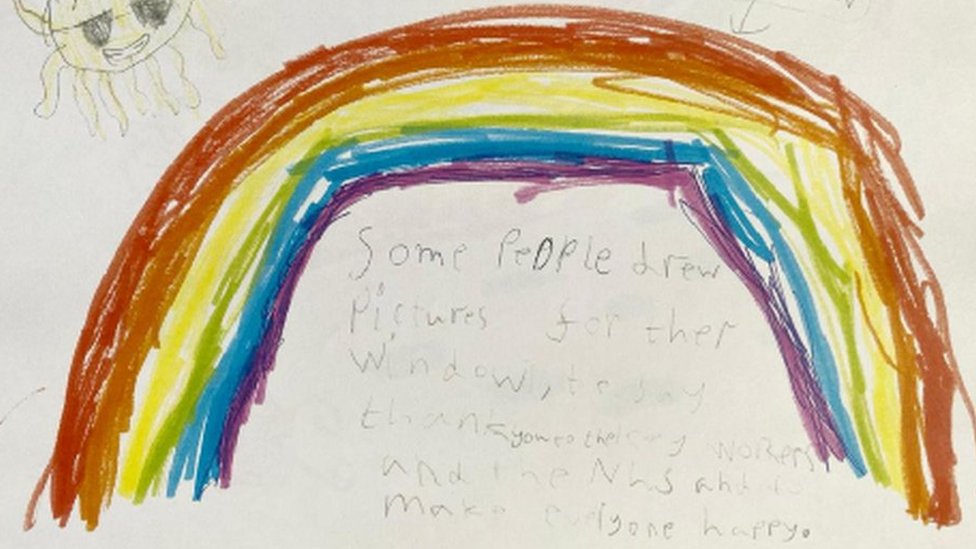 Some PeOPle drew
Pictures for ther
Window, to say
thank you to the key workers
and the NHS and to
make everyone happy.